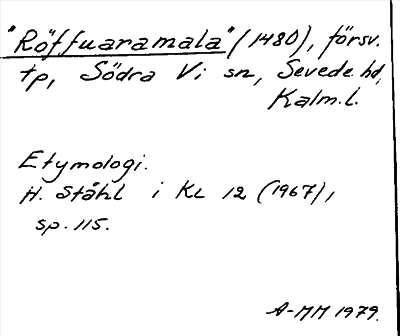 "Röffuaramala" (1480), försv.
tp, Södra Vi sn, Sevede hd,
Kalm. l.
Etymologi.
H. Ståhl i KL 12 (1967),
sp. 115.
A-MM 1979.